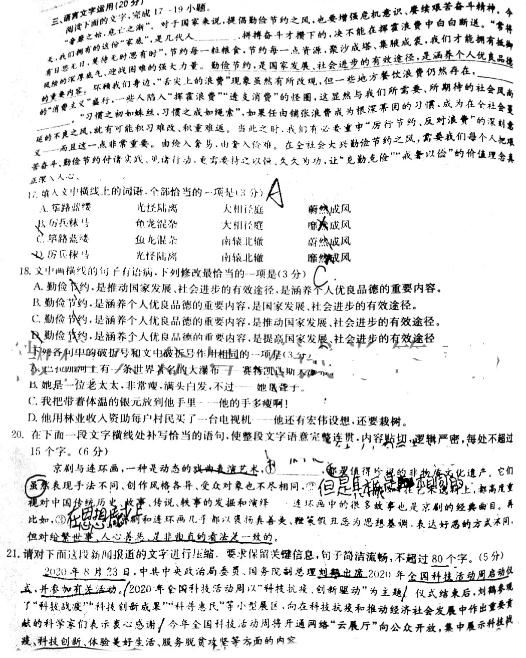 三、语言文字运用(20分)
阅读下面的文字,完成17-19小题。
"奢靡之始,危亡之渐"。对于国家来说,提倡勤俭节约之风,也要增强危机意识,要续艰苦奋斗精神,今
天,我们拥有的这份"家底",是几代人 拼搏奋斗才攒下的,决不能在挥霍浪费中白白断送。"常将
有日思无日,莫待无时思有时",节约每一粒粮食,节约每一点资源,聚沙成塔、集腋成裘,我们才能拥有抵御
风险的深厚底气、迎战困难的强大力量。勤俭节约,是国家发展、社会进步的有效途径,是涵养个人优良品德
的重要内容。环顾我们身边,"舌尖上的浪费"现象虽然有所改观,但一些地方餐饮浪费仍然存在,
的"消费主义"盛行,一些人陷入"挥霍浪费""透支消费"的怪圈,这显然与我们所需要、所期待的社会风尚
。"习惯之初如蛛丝,习惯之成如绳索",如果任由铺张浪费成为根深蒂固的习惯,成为在全社会蔓
延的不良之风,就有可能积习难改、积重难返。当此之时,我们有必要重申"厉行节约、反对浪费"的深刻意
义——而且这一点非常重要。由俭入奢易,由奢入俭难。在全社会大兴勤俭节约之风,需要我们每个人把艰
苦奋斗、勤俭节约付诸实践、见诸行动,更需要持之以恒、久久为功,让"克勤克俭""戒奢以俭"的价值理念真
正深入人心。
17. 填入文中横线上的词语,全部恰当的一项是(3分) A
A. 筚路蓝缕 光怪陆离 大相径庭 蔚然成风
B. 厉兵秣马 鱼龙混杂 大相径庭 靡然成风
C. 筚路蓝缕 鱼龙混杂 南辕北辙 蔚然成风
D. 厉兵秣马 光怪陆离 南辕北辙 靡然成风
18. 文中画横线的句子有语病,下列修改最恰当的一项是(3分) C
A. 勤俭节约,是推动国家发展、社会进步的有效途径,是涵养个人优良品德的重要内容。
B. 勤俭节约,是涵养个人优良品德的重要内容,是国家发展、社会进步的有效途径。
C. 勤俭节约,是涵养个人优良品德的重要内容,是推动国家发展、社会进步的有效途径。
D. 勤俭节约,是涵养个人优良品德的重要内容,是提高国家发展、社会进步的有效途径。
下列各句中的破折号和文中破折号作用相同的一项是(3分)
B. 她是一位老太太,非常瘦,满头白发,不过——她驼背了。
C. 我把带着体温的银元放到他手里——他的手多瘦啊!
D. 他用林业收入资助每户村民买了一台电视机——他还有宏伟设想,还要栽树。
20. 在下面一段文字横线处补写恰当的语句,使整段文字语意完整连贯,内容贴切,逻辑严密,每处不超过
15个字。(6分)
京剧与连环画,一种是动态的戏曲表演艺术,① ,都是值得珍视的非物质文化遗产。它们
虽然表现手法不同,创作风格各异,受众对象也不尽相同,② 但是思想是相同的
视对中国传统历史、故事、传说、轶事的发掘和演绎 连环画中的很多故事也是京剧的经典曲目。再
比如,③在思想核心上 剧和连环画几乎都以褒扬真善美、鞭笞假丑恶为思想基调,表达好恶的方式不同,
但对纷繁世事、人心善恶、是非曲直的看法是一致的。
21. 请对下面这段新闻报道的文字进行压缩。要求保留关键信息,句子简洁流畅,不超过80个字。(5分)
2020年8月23日,中共中央政治局委员、国务院副总理刘鹤出席2020年全国科技活动周启动仪
式,并参加有关活动。/2020年全国科技活动周以"科技战疫、创新驱动"为主题/仪式结束后,刘鹤参观
了"科技战疫""科技创新成果""科普惠民"等小型展区,向在科技抗疫和推动经济社会发展中作出重要贡
献的科学家们表示衷心感谢/今年全国科技活动周将开通网络"云展厅"向公众开放,集中展示科技战
疫、科技创新、体验美好生活、服务脱贫攻坚等方面的内容。